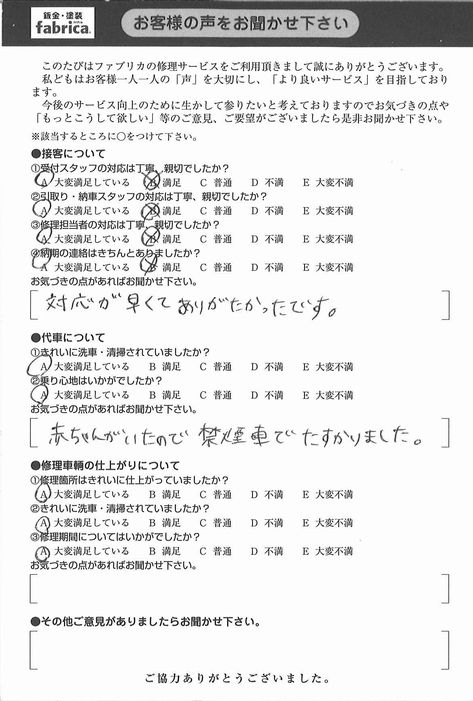 鈑金・塗装
fabrica.
お客様の声をお聞かせ下さい
このたびはファブリカの修理サービスをご利用頂きまして誠にありがとうございます。
私どもはお客様一人一人の「声」を大切にし、「より良いサービス」を目指しており
ます。
今後のサービス向上のために生かして参りたいと考えておりますのでお気づきの点や
「もっとこうして欲しい」等のご意見、ご要望がございましたら是非お聞かせ下さい。
※該当するところに○をつけて下さい。
●接客について
①受付スタッフの対応は丁寧、親切でしたか?
A 大変満足している B 満足 C 普通 D 不満 E 大変不満
②引取り・納車スタッフの対応は丁寧、親切でしたか?
A 大変満足している B 満足 C 普通 D 不満 E 大変不満
③修理担当者の対応は丁寧、親切でしたか?
A 大変満足している B 満足 C 普通 D 不満 E 大変不満
④納期の連絡はきちんとありましたか?
A 大変満足している B 満足 C 普通 D 不満 E 大変不満
お気づきの点があればお聞かせ下さい。
対応が早くてありがたかったです。
●代車について
①きれいに洗車・清掃されていましたか?
A 大変満足している B 満足 C 普通 D 不満 E 大変不満
②乗り心地はいかがでしたか?
A 大変満足している B 満足 C 普通 D 不満 E 大変不満
お気づきの点があればお聞かせ下さい。
赤ちゃんがいたので禁煙車でたすかりました。
●修理車輌の仕上がりについて
①修理箇所はきれいに仕上がっていましたか?
A 大変満足している B 満足 C 普通 D 不満 E 大変不満
②きれいに洗車・清掃されていましたか?
A 大変満足している B 満足 C 普通 D 不満 E 大変不満
③修理期間についてはいかがでしたか?
A 大変満足している B 満足 C 普通 D 不満 E 大変不満
お気づきの点があればお聞かせ下さい。
●その他ご意見がありましたらお聞かせ下さい。
ご協力ありがとうございました。